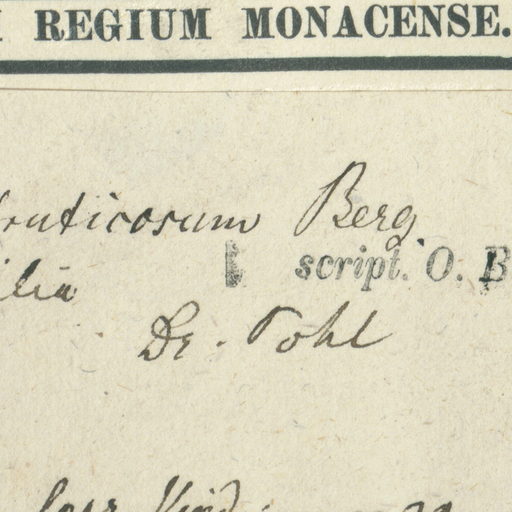 REGIUM MONACENSE.
fruticosum Berg.
script. O. B
ilia
Dr. Pohl